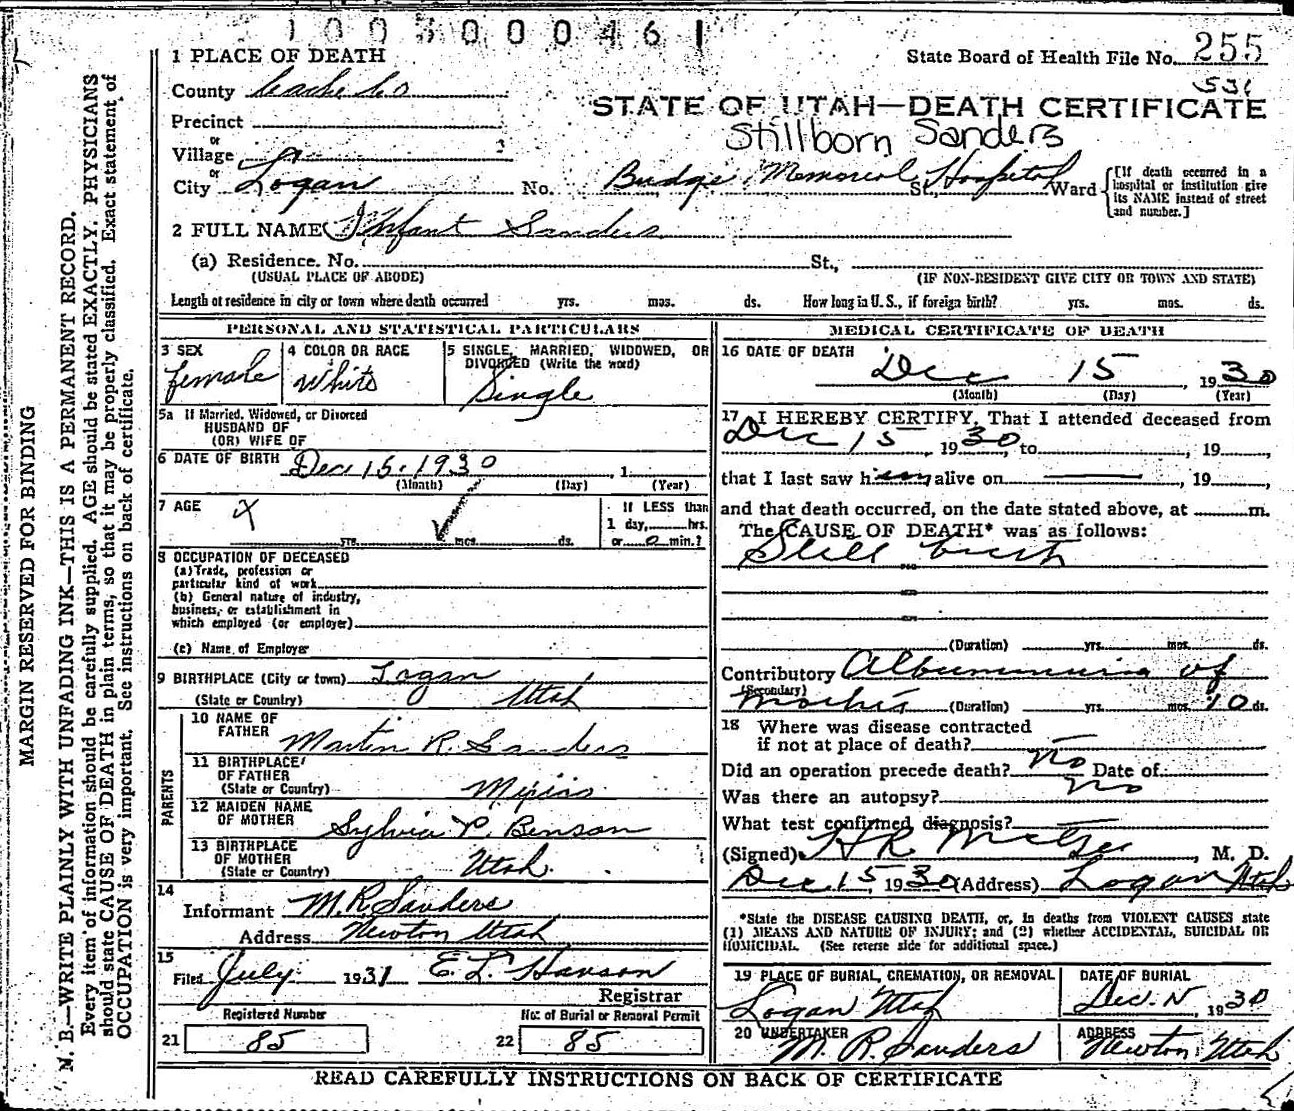 1003000461
1 PLACE OF DEATH
State Board of Health File No. 255
531
County Cache Co
STATE OF UTAH—DEATH CERTIFICATE
Precinct
Stillborn Sanders
or
Village
or
City Logan No. Budge Memorial Hospital St., Ward
[If death occurred in a
hospital or institution give
its NAME instead of street
and number.]
2 FULL NAME Infant Sanders
(a) Residence. No. St.,
(USUAL PLACE OF ABODE) (IF NON-RESIDENT GIVE CITY OR TOWN AND STATE)
Length of residence in city or town where death occurred yrs. mos. ds. How long in U. S., if foreign birth? yrs. mos. ds.
PERSONAL AND STATISTICAL PARTICULARS
3 SEX
female
4 COLOR OR RACE
White
5 SINGLE, MARRIED, WIDOWED, OR
DIVORCED (Write the word)
Single
5a If Married, Widowed, or Divorced
HUSBAND OF
(OR) WIFE OF
6 DATE OF BIRTH Dec 15. 1930 , 1
(Month) (Day) (Year)
7 AGE X
yrs. mos. ds.
If LESS than
1 day, hrs.
or 0 min.?
8 OCCUPATION OF DECEASED
(a) Trade, profession or
particular kind of work
(b) General nature of industry,
business, or establishment in
which employed (or employer)
(c) Name of Employer
9 BIRTHPLACE (City or town) Logan
(State or Country) Utah
PARENTS
10 NAME OF
FATHER Martin R. Sanders
11 BIRTHPLACE
OF FATHER
(State or Country)
12 MAIDEN NAME
OF MOTHER Sylvia P. Benson
13 BIRTHPLACE
OF MOTHER
(State or Country) Utah
14
Informant M. R. Sanders
Address Newton Utah
15
Filed July 1931 E. L. Hanson
Registrar
Registered Number No. of Burial or Removal Permit
21 85 22 85
MEDICAL CERTIFICATE OF DEATH
16 DATE OF DEATH
Dec 15 , 1930
(Month) (Day) (Year)
17 I HEREBY CERTIFY, That I attended deceased from
Dec 15 , 1930, to , 19 ,
that I last saw him alive on , 19 ,
and that death occurred, on the date stated above, at m.
The CAUSE OF DEATH* was as follows:
Still birth
(Duration) yrs. mos. ds.
Contributory Albuminuria of
(Secondary)
(Duration) yrs. mos. 10 ds.
18 Where was disease contracted
if not at place of death?
Did an operation precede death? No Date of
Was there an autopsy? No
What test confirmed diagnosis?
(Signed) H R McGee , M. D.
Dec 15, 1930 (Address) Logan Utah
*State the DISEASE CAUSING DEATH, or, in deaths from VIOLENT CAUSES state
(1) MEANS AND NATURE OF INJURY; and (2) whether ACCIDENTAL, SUICIDAL OR
HOMICIDAL. (See reverse side for additional space.)
19 PLACE OF BURIAL, CREMATION, OR REMOVAL
Logan Utah
DATE OF BURIAL
Dec. , 1930
20 UNDERTAKER
M. R. Sanders
ADDRESS
Newton Utah
READ CAREFULLY INSTRUCTIONS ON BACK OF CERTIFICATE
MARGIN RESERVED FOR BINDING
N. B.—WRITE PLAINLY WITH UNFADING INK—THIS IS A PERMANENT RECORD.
Every item of information should be carefully supplied. AGE should be stated EXACTLY. PHYSICIANS
should state CAUSE OF DEATH in plain terms, so that it may be properly classified. Exact statement of
OCCUPATION is very important. See instructions on back of certificate.